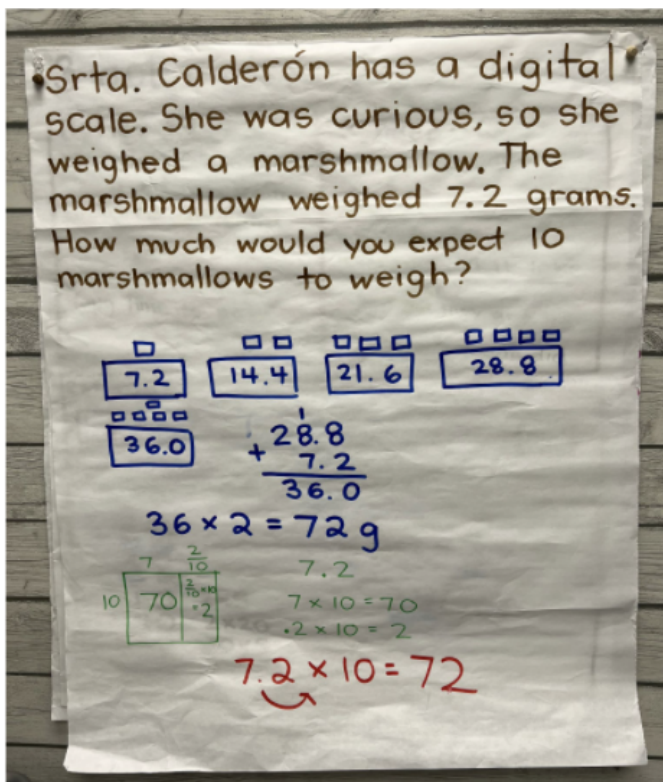 Srta. Calderón has a digital
scale. She was curious, so she
weighed a marshmallow. The
marshmallow weighed 7.2 grams.
How much would you expect 10
marshmallows to weigh?
7.2 14.4 21.6 28.8
36.0
1
28.8
+ 7.2
36.0
36 × 2 = 72 g
7 2/10
10 70 2/10 × 10
.2
7.2
7 × 10 = 70
.2 × 10 = 2
7.2 × 10 = 72